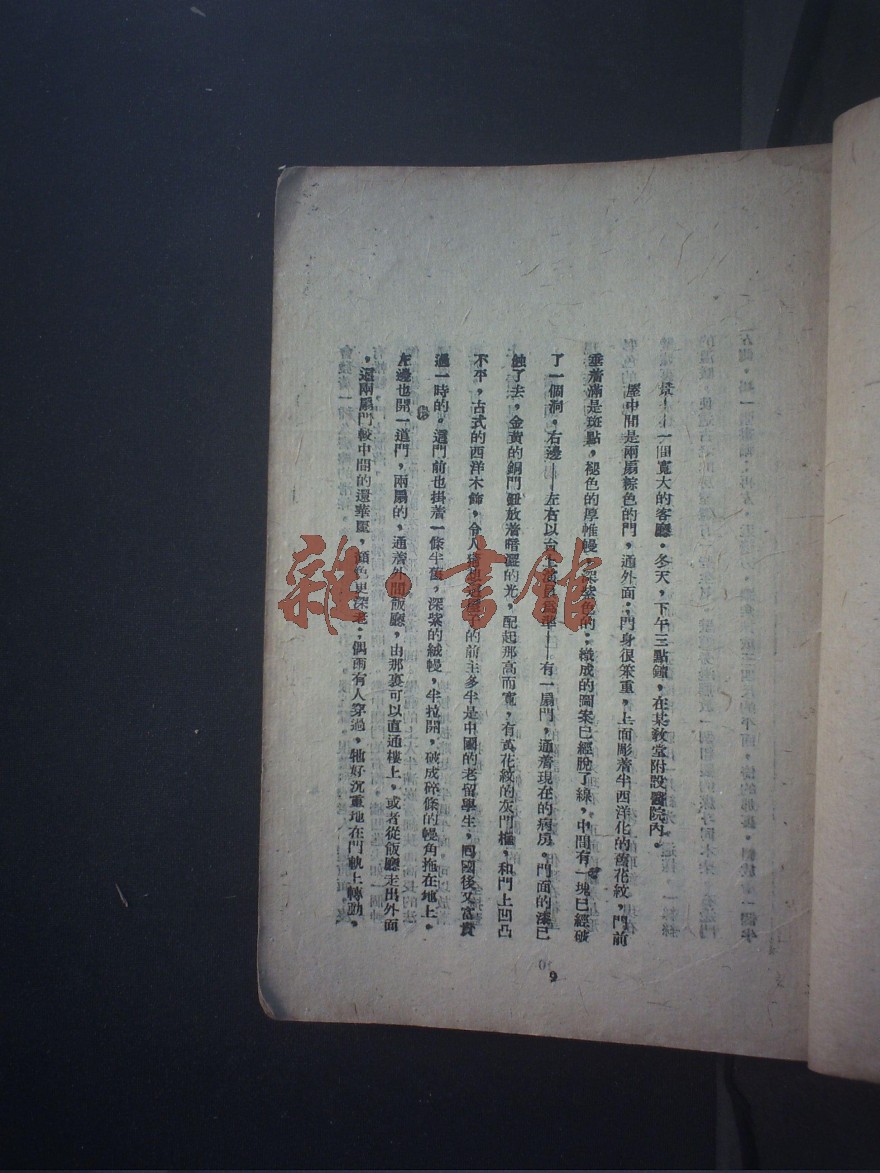 景——一間寬大的客廳。冬天，下午三點鐘，在某敎堂附設醫院內。
屋中間是兩扇棕色的門，通外面；門身很笨重，上面彫着半西洋化的舊花紋，門前
垂着滿是斑點，褪色的厚帷幔，深紫色的；織成的圖案已經脫了線，中間有一塊已經破
了一個洞。右邊——左右以台上演員爲準——有一扇門，通着現在的病房。門面的漆已
蝕了去，金黃的銅門鈕放着暗澀的光，配起那高而寬，有黃花紋的灰門框，和門上凹凸
不平，古式的西洋木飾，令人猜想這屋子的前主多半是中國的老留學生，囘國後又富貴
過一時的。這門前也掛着一條半舊，深紫的絨幔，半拉開，破成碎條的幔角拖在地上。
左邊也開一道門，兩扇的，通着外間飯廳，由那裏可以直通樓上，或者從飯廳走出外面
，這兩扇門較中間的還華麗，顏色更深老；偶而有人穿過，牠好沉重地在門軌上轉動，
9
雜·書館